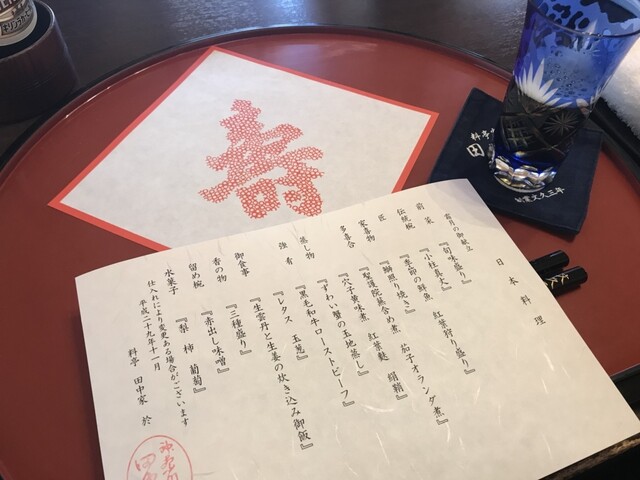 寿
料亭
田
創業文久三年
日本料理
霜月の御献立
前菜 『旬味盛り』 紅葉狩り盛り』
伝統椀 『小柱真丈』
匠 『季節の鮮魚』
家喜物 『鰤照り焼き』
多喜合 『聖護院蕪含め煮 紅葉麩 絹鞘』 茄子オランダ煮』
『穴子黄味煮
蒸し物 『ずわい蟹の玉地蒸し』
強肴 『黒毛和牛ローストビーフ』
『レタス 玉葱』
御食事 『生雲丹と生姜の炊き込み御飯』
香の物 『三種盛り』
留め椀 『赤出し味噌』
水菓子 『梨 柿 葡萄』
仕入れにより変更ある場合がございます
平成二十九年十一月
料亭 田中家 於